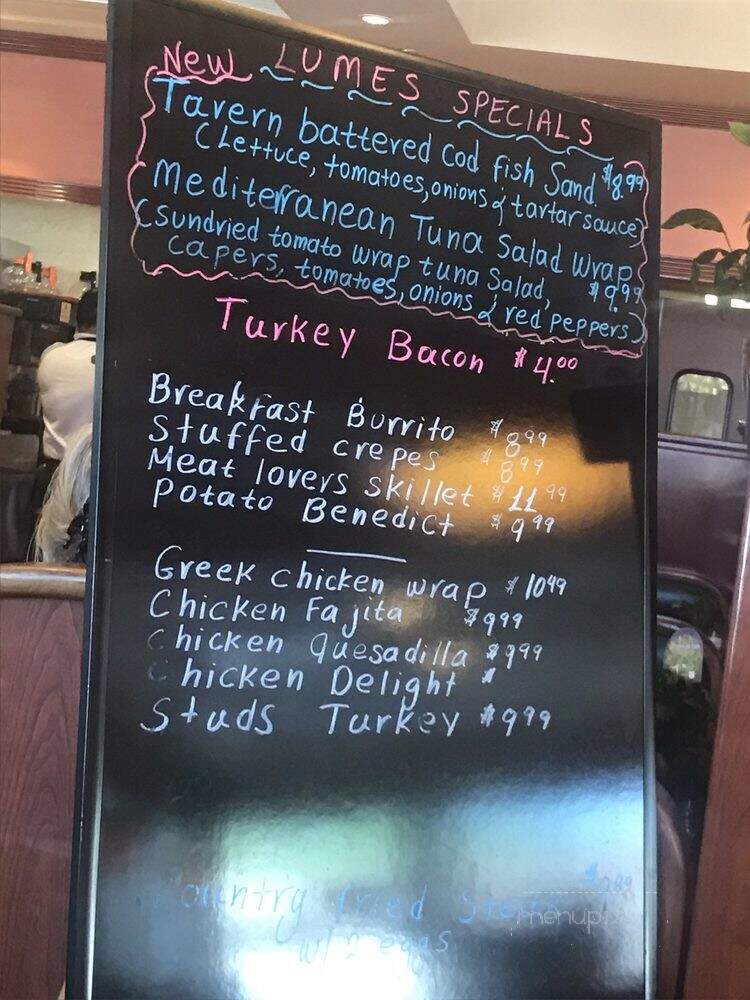 New LUMES SPECIALS
Tavern battered Cod fish Sand. $8.99
(Lettuce, tomatoes, onions & tartar sauce)
Mediterranean Tuna Salad Wrap
(Sundried tomato wrap tuna Salad, $9.99
capers, tomatoes, onions & red peppers)
Turkey Bacon $4.00
Breakfast Burrito $8.99
Stuffed crepes $8.99
Meat lovers skillet $11.99
Potato Benedict $9.99
Greek chicken wrap $1049
Chicken Fajita $999
Chicken quesadilla $999
Chicken Delight $
Studs Turkey $999
Country fried Steak
w/2 eggs
menupix